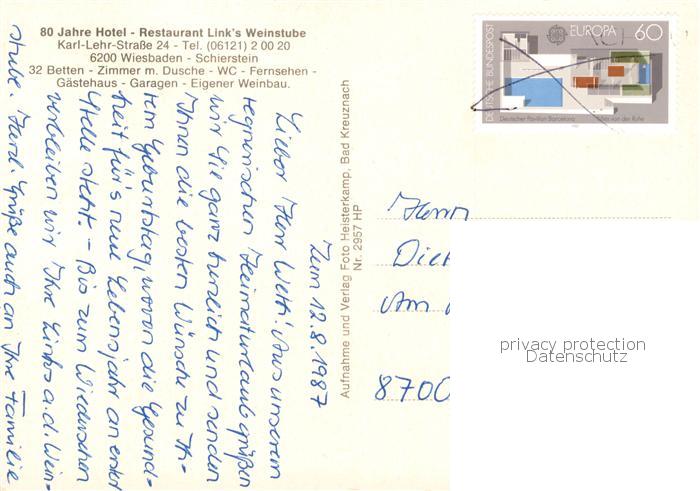 80 Jahre Hotel - Restaurant Link's Weinstube
Karl-Lehr-Straße 24 - Tel. (06121) 2 00 20
6200 Wiesbaden - Schierstein
32 Betten - Zimmer m. Dusche - WC - Fernsehen -
Gästehaus - Garagen - Eigener Weinbau.
Zum 12.8.1987
Lieber Herr Welti! Aus unserem
regnerischen Heimaturlaub grüßen
wir Sie ganz herzlich und senden
Ihnen die besten Wünsche zu Ih-
rem Geburtstag, wovon die Gesund-
heit für's neue Lebensjahr an erster
Stelle steht. - Bis zum Wiedersehen
verbleiben wir Ihre Links a. d. Wein-
stube. Herzl. Grüße auch an Ihre Familie
Aufnahme und Verlag Foto Heisterkamp, Bad Kreuznach
Nr. 2957 HP
DEUTSCHE BUNDESPOST
EUROPA 60
Deutscher Pavillon Barcelona
Mies van der Rohe
Herrn
Am
8700
privacy protection
Datenschutz